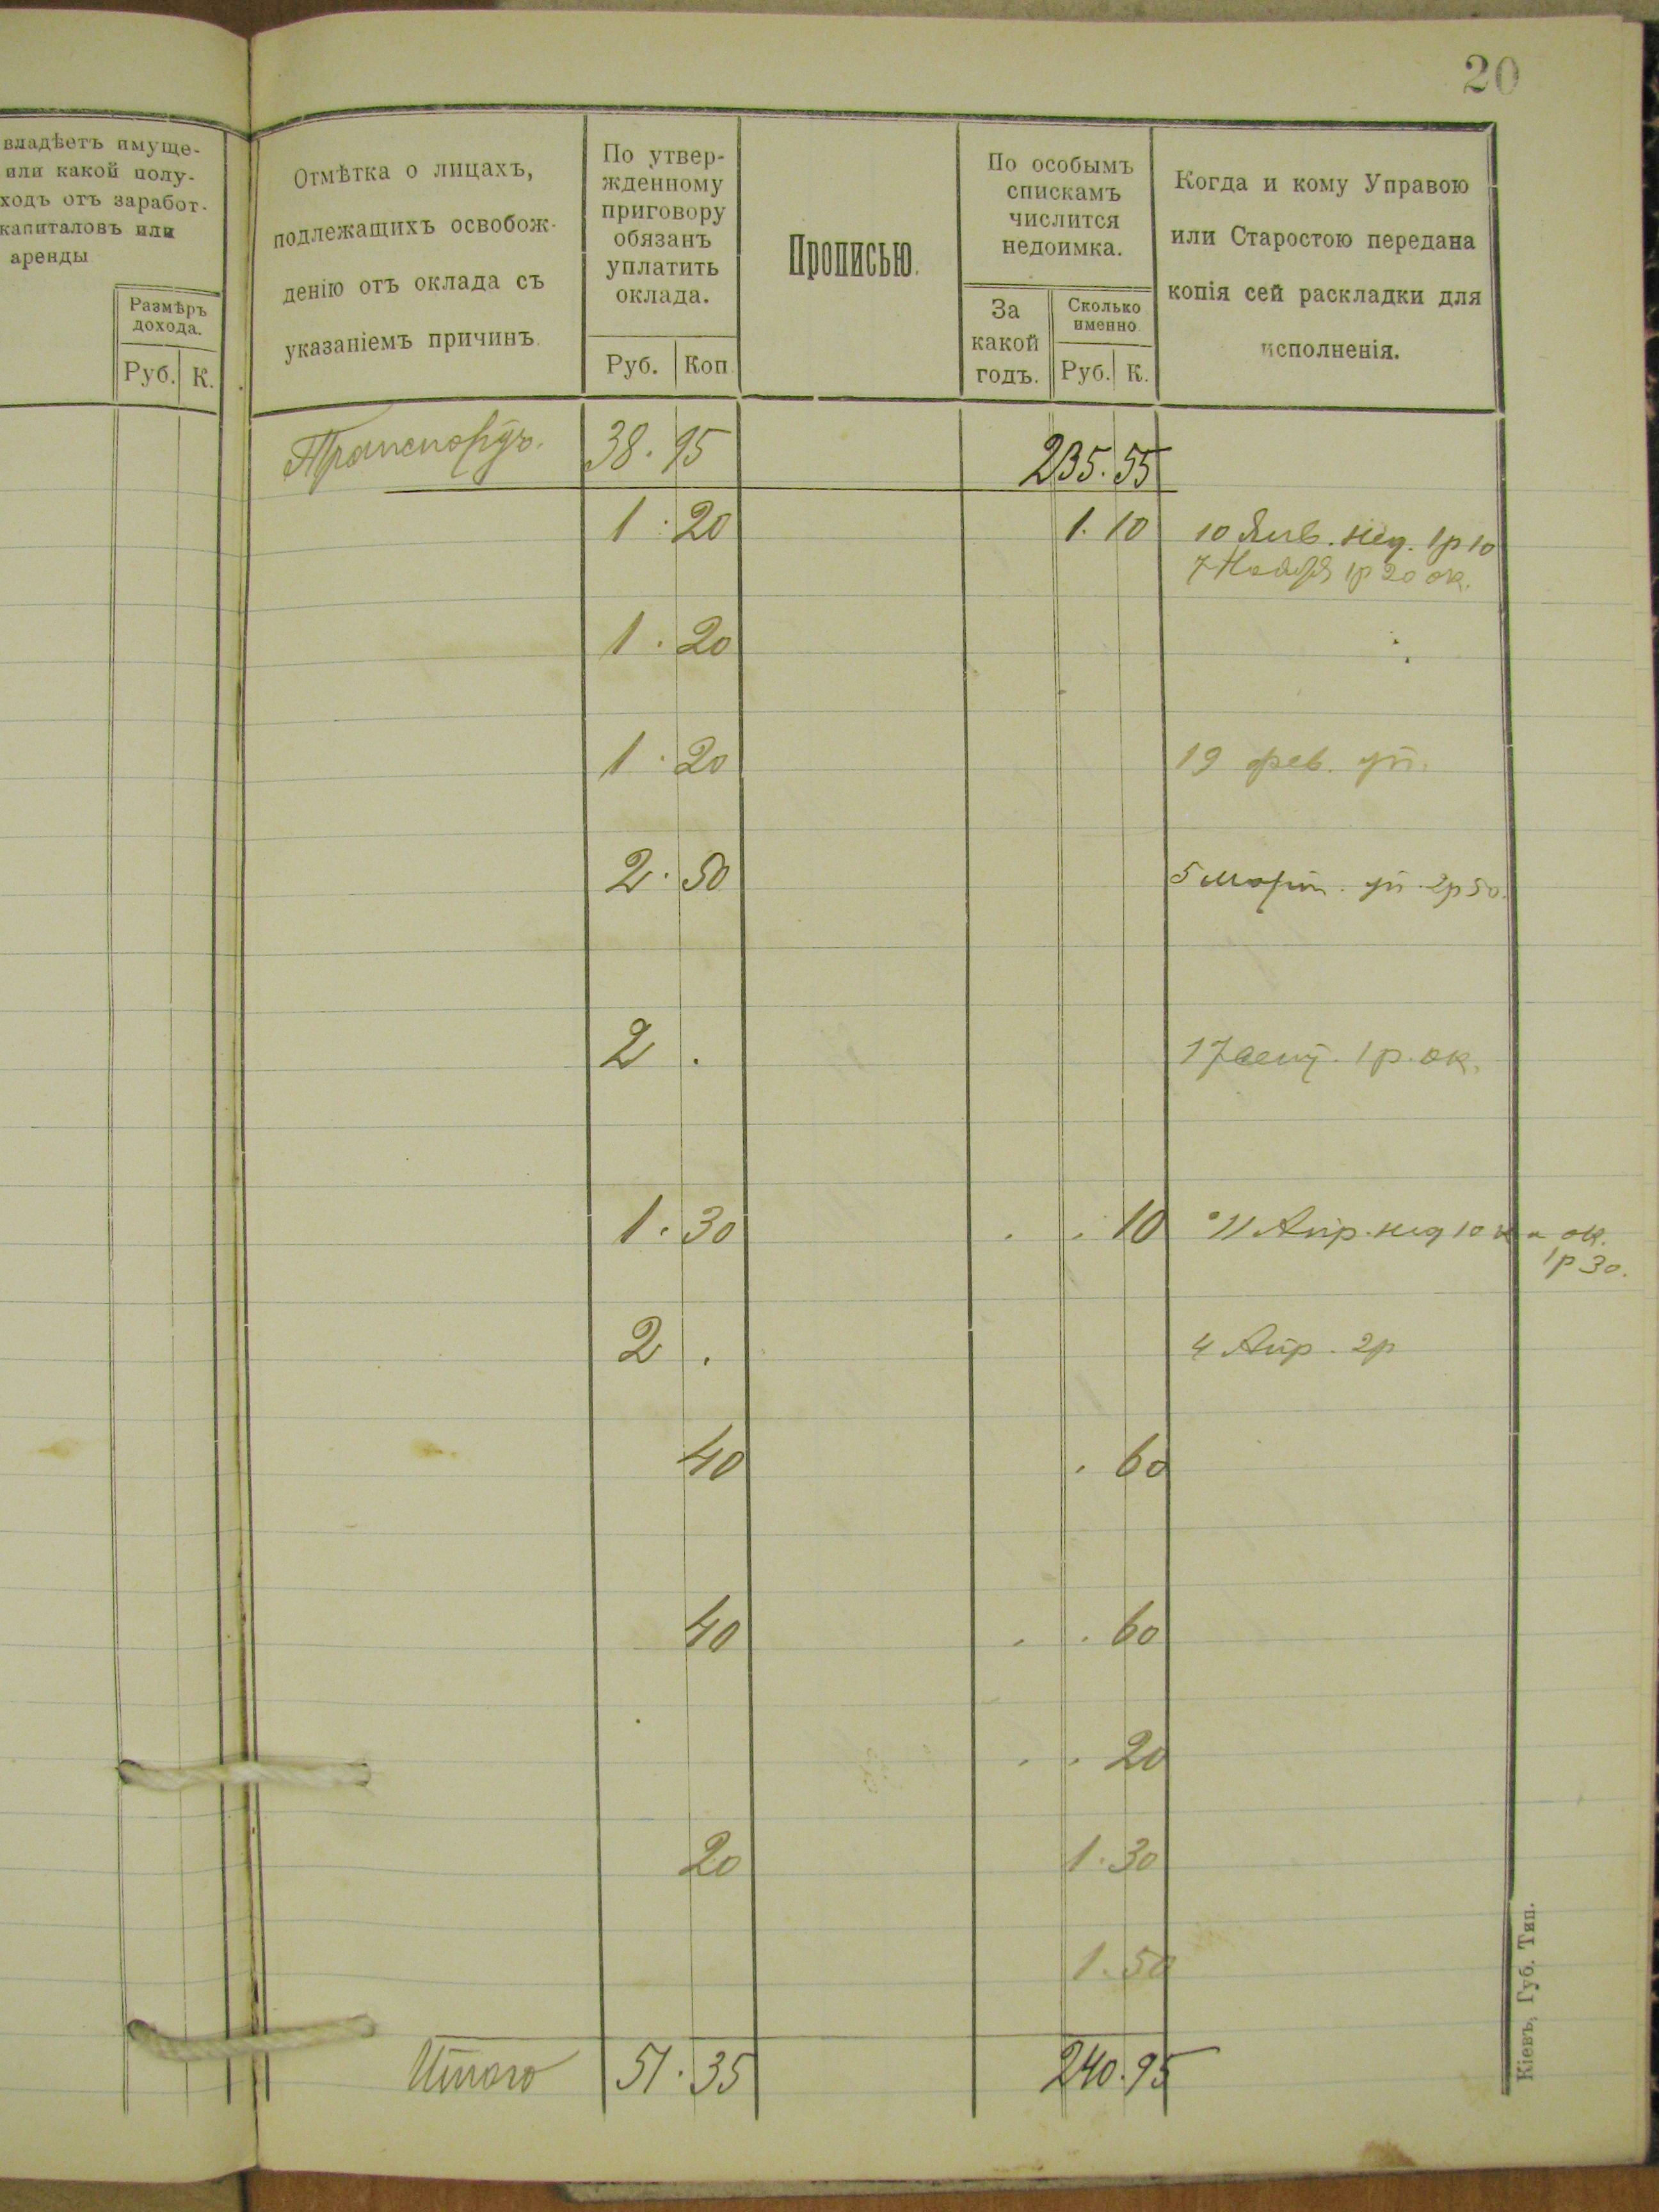 20
владѣетъ имуще-
или какой полу-
ходъ отъ заработ-
капиталовъ или
аренды
Размѣръ
дохода.
Руб. К.
Отмѣтка о лицахъ,
подлежащихъ освобож-
денію отъ оклада съ
указаніемъ причинъ.
По утвер-
жденному
приговору
обязанъ
уплатить
оклада.
Руб. Коп
Прописью.
По особымъ
спискамъ
числится
недоимка.
За
какой
годъ.
Сколько
именно
Руб. К.
Когда и кому Управою
или Старостою передана
копія сей раскладки для
исполненія.
Транспортъ. 38. 95 235. 55
1. 20 1. 10 10 Янв. нед. 1р 10
7 Ноября 1р 20 ок.
1. 20
1. 20 19 фев. уп.
2. 50 5 март. уп. 2р 50.
2 . 17 сент. 1р. ок.
1. 30 . . 10 11 Апр. нед 10 к и ок.
1р 30.
2 . 4 Апр. 2р
40 . 60
40 . . 60
. . 20
20 1. 30
1. 50
Итого 51. 35 240. 95
Кіевъ, Губ. Тип.